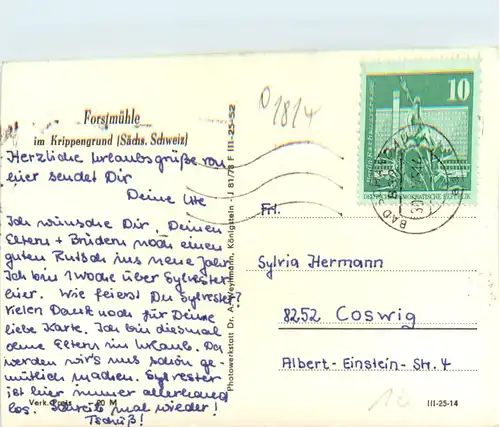 Forstmühle
im Krippengrund (Sächs. Schweiz)
Herzliche Urlaubsgrüße von
hier sendet Dir
Deine Ute
Ich wünsche Dir, Deinen
Eltern + Brüdern noch einen
guten Rutsch ins neue Jahr.
Ich bin 1 Woche über Sylvester
hier. Wie feierst Du Sylvester?
Vielen Dank noch für Deine
liebe Karte. Ich bin diesmal
ohne Eltern im Urlaub. Da
werden wir's uns schön ge-
mütlich machen. Sylvester
ist hier immer allerhand
los. Schreib mal wieder!
Tschüß!
Verk.-Preis -,20 M
Photowerkstatt Dr. A. Weyhmann, Königstein - J 81/73 F III-25-52
01814
10
DEUTSCHE DEMOKRATISCHE REPUBLIK
BAD
Frl.
Sylvia Hermann
8252 Coswig
Albert-Einstein-Str. 4
III-25-14